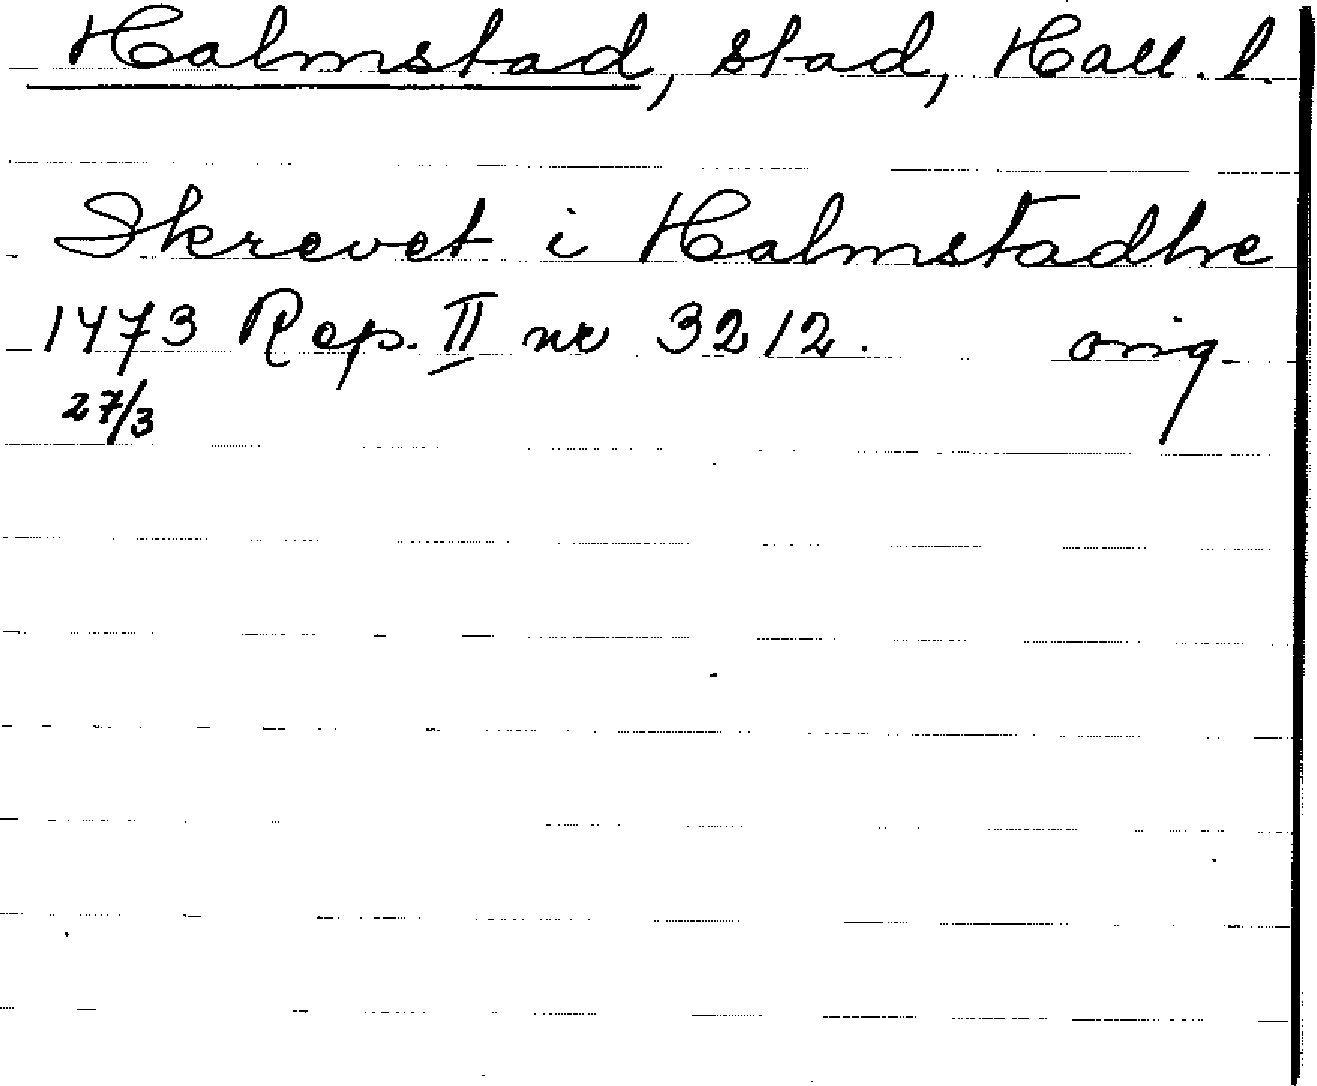 Halmstad, stad, Hall. l.
Skrevet i Halmstadhe
1473 Rep. II nr 3212. orig.
27/3